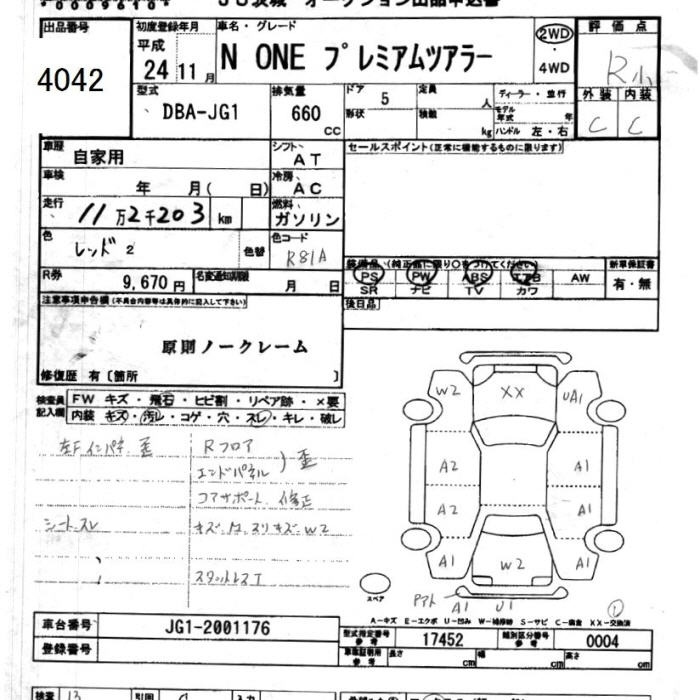 JU茨城 オークション出品申込書
出品番号
4042
初度登録年月
平成
24 11月
車名・グレード
N ONE プレミアムツアラー
2WD
4WD
評価点
R小
外装 内装
C C
型式
DBA-JG1
排気量
660
CC
ドア 5
形状
定員 人
積載 kg
ディーラー・並行
モデル年式 年
ハンドル 左・右
車歴
自家用
シフト
AT
セールスポイント(正常に機能するものに限ります)
車検
年 月( 日)
冷房
AC
走行
11万2千203 km
燃料
ガソリン
色
レッド2
色替
色コード
R81A
R券
9,670円
名変通知期限
月 日
装備品(純正品に限り○をつけてください)
PS PW ABS エアB AW
SR ナビ TV カワ
新車保証書
有・無
後日品
注意事項申告欄(不具合内容等は具体的に記入して下さい)
原則ノークレーム
修復歴 有〔箇所 〕
検査員記入欄
FW キズ・飛石・ヒビ割・リペア跡・×要
内装 キズ・汚レ・コゲ・穴・スレ・キレ・破レ
左Fインパネ 歪
Rフロア
エンドパネル ) 歪
コアサポート 修正
シートスレ
スタットレスT
W2 XX UA1
A2 A1
A2 A1
A1 W2 A1
スペア
アト A1 U1
①
A-キズ E-エクボ U-凹ミ W-補修跡 S-サビ C-腐食 XX-交換済
車台番号
JG1-2001176
登録番号
型式指定番号 参考
17452
類別区分番号 参考
0004
車庫証明用 参考
長さ cm
幅 cm
高さ cm
検査 13